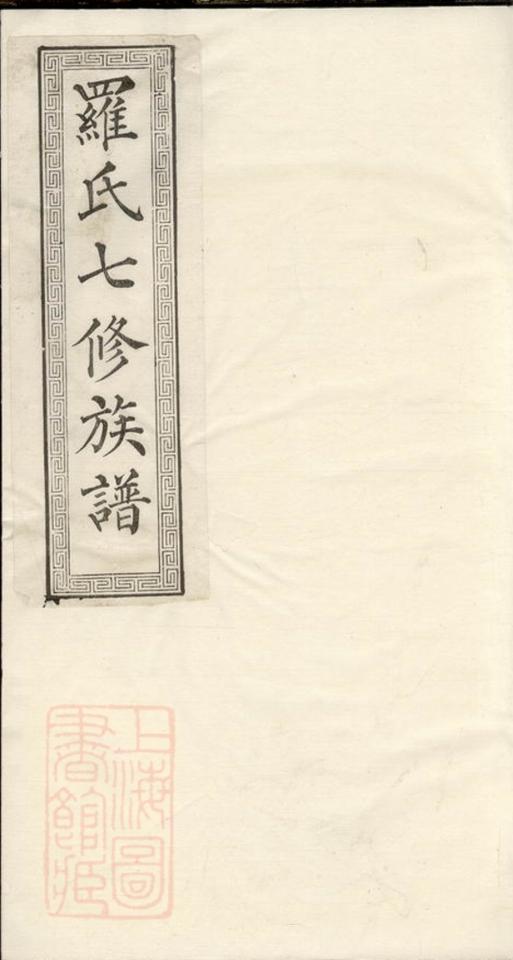 羅氏七修族譜
上海圖
書館藏